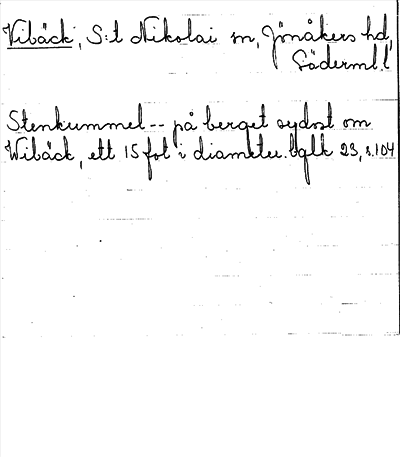 Vibäck, S:t Nikolai sn, Jönåkers hd,
Söderml. l
Stenkummel -- på berget sydost om
Wibäck, ett 15 fot i diameter. bglk 23, s.104